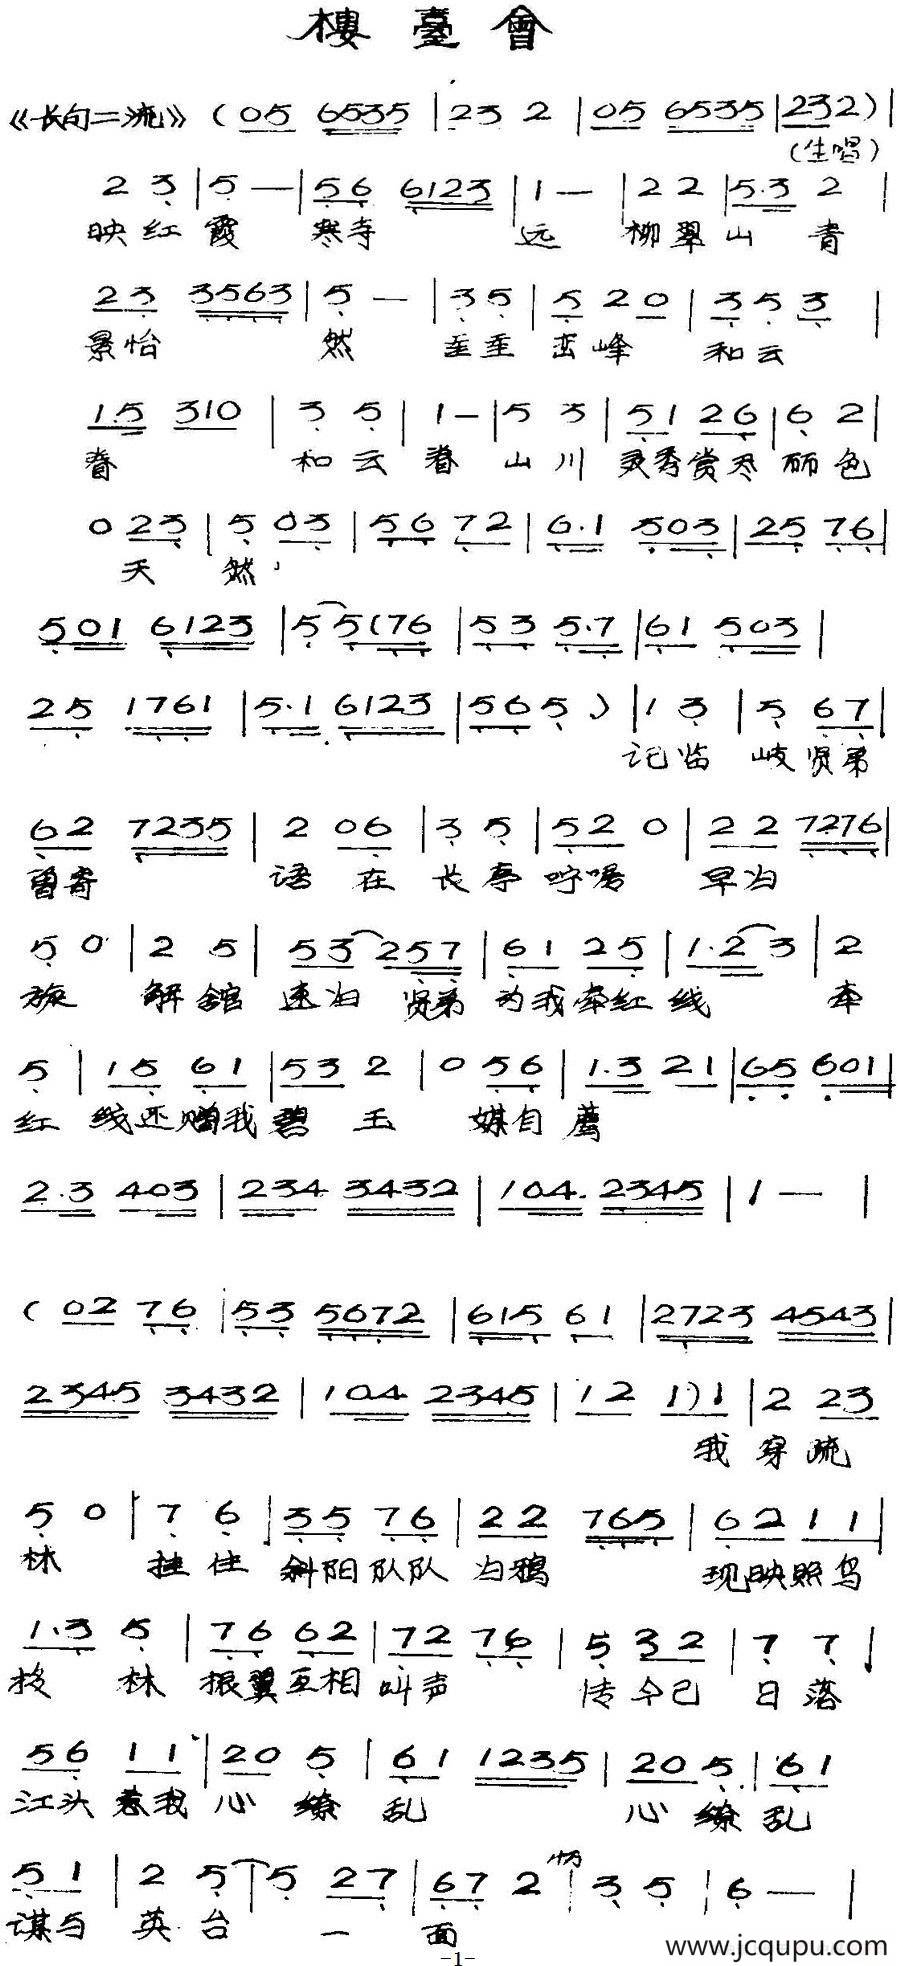 樓臺會
《长句二流》 (05 6535 | 23 2 | 05 6535 | 232) |
(生唱)
2 3 | 5 — | 56 6123 | 1 — | 22 | 5·3 2 |
映红霞 寒寺 远 柳翠山 青
23 3563 | 5 — | 35 | 5 20 | 353 |
景怡 然 峦峰 和云
15 310 | 3 5 | 1 — | 5 3 | 51 26 | 6 2 |
眷 和云眷 山川 灵秀赏尽 丽色
0 23 | 5 03 | 56 72 | 6·1 503 | 25 76 |
天 然
501 6123 | 5 5(76 | 53 5·7 | 61 503 |
25 1761 | 5·1 6123 | 565 5) | 1 3 | 5 67 |
记临 岐贤弟
62 7235 | 2 06 | 3 5 | 52 0 | 22 7276 |
曾寄 语 在 长亭 咛嘱 早归
5 0 | 2 5 | 53 257 | 61 25 | 1·2 3 | 2
旋 解舘 速归 贤弟 为我牵红 线 牵
5 | 15 61 | 53 2 | 0 56 | 1·3 21 | 65 601 |
红 线还赠我 碧 玉 媒自 薦
2·3 403 | 234 3432 | 104 2345 | 1 — |
(02 76 | 53 5672 | 615 61 | 2723 4543 |
2345 3432 | 104 2345 | 12 1)1 | 2 23
我 穿疏
5 0 | 7 6 | 35 76 | 22 765 | 62 11 |
林 挂住 斜阳队队 归鸦 现映照鸟
1·3 5 | 76 62 | 72 76 | 5 32 | 7 7 |
投 林 振翼互相 叫声 传 今已 日落
56 11 | 20 5 | 61 1235 | 20 5 | 61
江头 惹我 心 缭 乱 心 缭乱
51 | 2 5 | 5 27 | 67 2 | 3 5 | 6 — |
谋与 英台 一 面
-1-
www.jcqupu.com